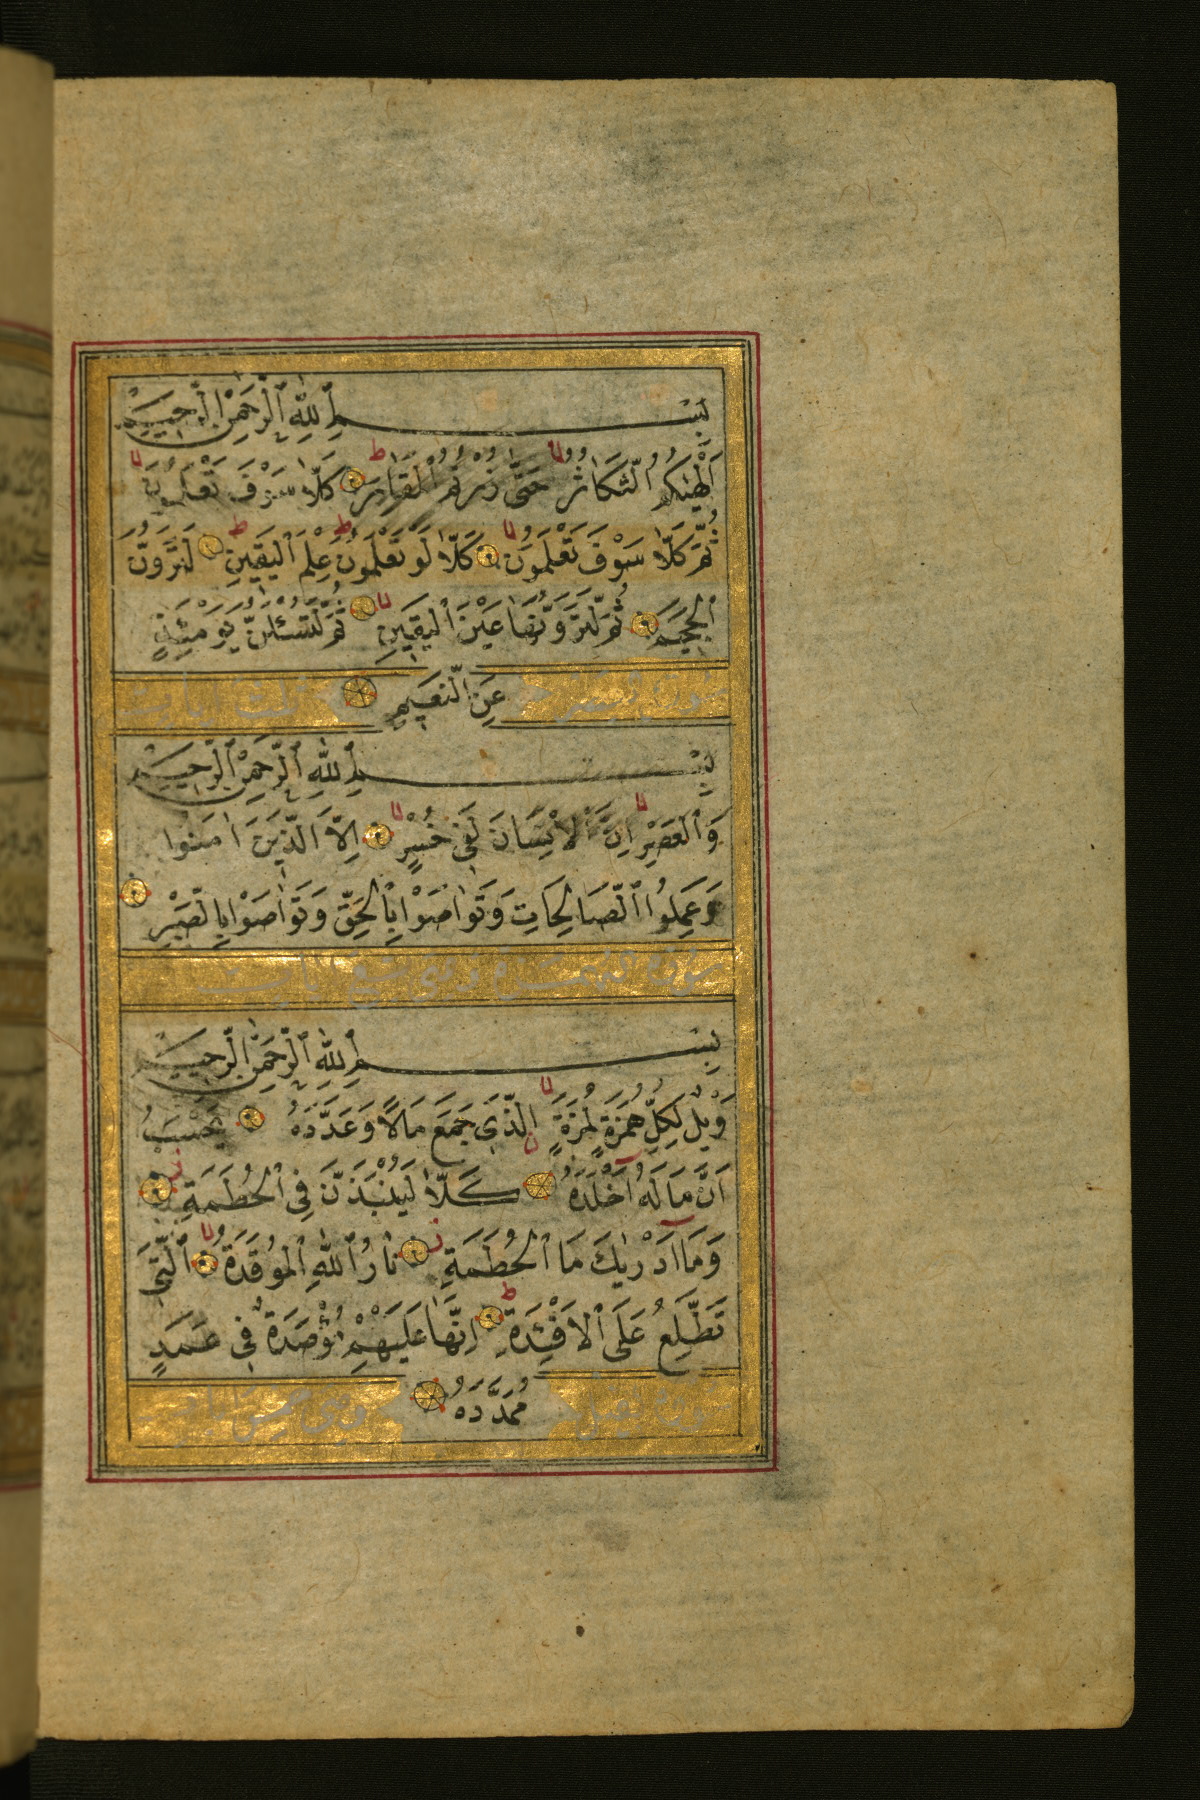 بِسْمِ اللّٰهِ الرَّحْمٰنِ الرَّحِيمِ
اَلْهٰيكُمُ التَّكَاثُرُ حَتّٰى زُرْتُمُ الْمَقَابِرَ كَلَّا سَوْفَ تَعْلَمُونَ
ثُمَّ كَلَّا سَوْفَ تَعْلَمُونَ كَلَّا لَوْ تَعْلَمُونَ عِلْمَ الْيَقِينِ لَتَرَوُنَّ
الْجَحِيمَ ثُمَّ لَتَرَوُنَّهَا عَيْنَ الْيَقِينِ ثُمَّ لَتُسْئَلُنَّ يَوْمَئِذٍ
عَنِ النَّعِيمِ
سورة العصر ثلث ايات
بِسْمِ اللّٰهِ الرَّحْمٰنِ الرَّحِيمِ
وَالْعَصْرِ اِنَّ الْاِنْسَانَ لَفِى خُسْرٍ اِلَّا الَّذِينَ اٰمَنُوا
وَعَمِلُوا الصَّالِحَاتِ وَتَوَاصَوْا بِالْحَقِّ وَتَوَاصَوْا بِالصَّبْرِ
سورة الهمزة وهى تسع ايات
بِسْمِ اللّٰهِ الرَّحْمٰنِ الرَّحِيمِ
وَيْلٌ لِكُلِّ هُمَزَةٍ لُمَزَةٍ الَّذِى جَمَعَ مَالًا وَعَدَّدَهُ يَحْسَبُ
اَنَّ مَا لَهُ اَخْلَدَهُ كَلَّا لَيُنْبَذَنَّ فِى الْحُطَمَةِ
وَمَا اَدْرٰيكَ مَا الْحُطَمَةُ نَارُ اللّٰهِ الْمُوقَدَةُ الَّتِى
تَطَّلِعُ عَلَى الْاَفْئِدَةِ اِنَّهَا عَلَيْهِمْ مُؤْصَدَةٌ فِى عَمَدٍ
مُمَدَّدَةٍ
سورة الفيل وهى خمس ايات